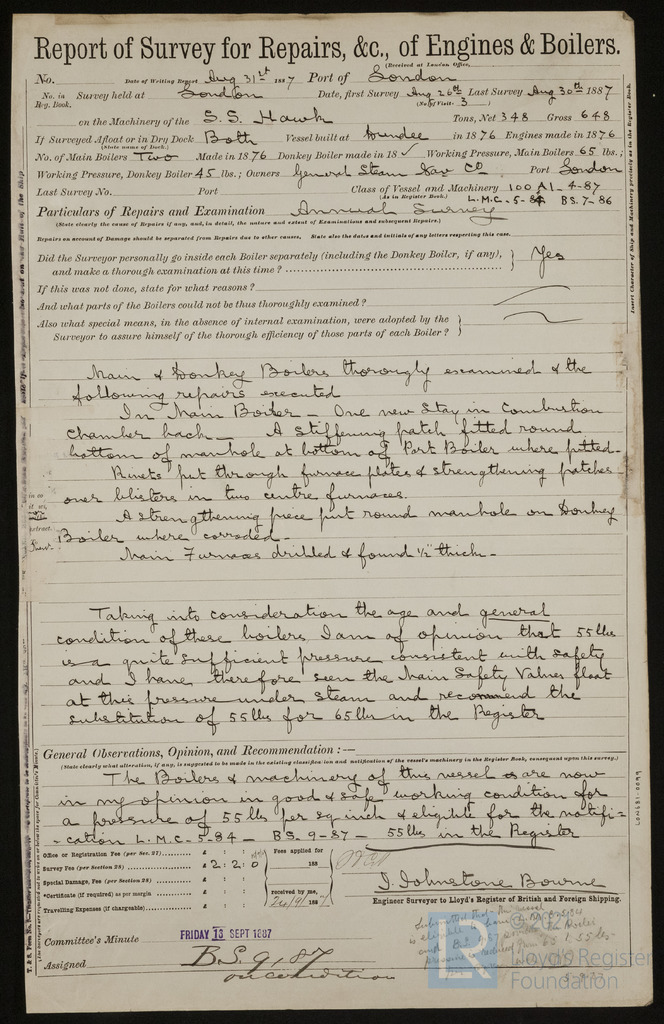 Report of Survey for Repairs, &c., of Engines & Boilers.
(Received at London Office,
No. Date of Writing Report Aug 31st 1887 Port of London
No. in Reg. Book. Survey held at London Date, first Survey Aug 26th Last Survey Aug 30th 1887
(No. of Visits 3)
on the Machinery of the S.S. Hawk Tons, Net 348 Gross 648
If Surveyed Afloat or in Dry Dock Both Vessel built at Dundee in 1876 Engines made in 1876
(State name of Dock.)
No. of Main Boilers Two Made in 1876 Donkey Boiler made in 18 Working Pressure, Main Boilers 65 lbs.;
Working Pressure, Donkey Boiler 45 lbs.; Owners General Steam Nav Co Port London
Last Survey No. Port Class of Vessel and Machinery 100 A1-4-87
(As in Register Book.) L.M.C-5-84 B.S.7-86
Particulars of Repairs and Examination Annual Survey
(State clearly the cause of Repairs if any, and, in detail, the nature and extent of Examinations and subsequent Repairs.)
Repairs on account of Damage should be separated from Repairs due to other causes. State also the dates and initials of any letters respecting this case.
Did the Surveyor personally go inside each Boiler separately (including the Donkey Boiler, if any),
and make a thorough examination at this time? Yes
If this was not done, state for what reasons?
And what parts of the Boilers could not be thus thoroughly examined?
Also what special means, in the absence of internal examination, were adopted by the
Surveyor to assure himself of the thorough efficiency of those parts of each Boiler?
Main & Donkey Boilers thorougly examined & the
following repairs executed
In Main Boiler - One new Stay in Combustion
Chamber back - A stiffening patch fitted round
bottom of manhole at bottom of Port Boiler where pitted-
Rivets put through furnace plates & strengthening patches
over blisters in two centre furnaces.
A strengthening piece put round manhole on Donkey
Boiler where corroded-
Main Furnaces drilled & found ½" thick-
Taking into consideration the age and general
condition of these boilers I am of opinion that 55 lbs
is a quite sufficient pressure consistent with safety
and I have therefore seen the Main Safety Valves float
at this pressure under steam and recommend the
substitution of 55 lbs for 65 lbs in the Register
General Observations, Opinion, and Recommendation:—
(State clearly what alteration, if any, is suggested to be made in the existing classification and notification of the vessel's machinery in the Register Book, consequent upon this survey.)
The Boilers & machinery of this vessel are now
in my opinion in good & safe working condition for
a pressure of 55 lbs per sq inch & eligible for the notifi-
-cation L.M.C-5-84 - B.S.9-87 - 55 lbs in the Register
Office or Registration Fee (per Sec. 27) £ : :
Survey Fee (per Section 28) £ 2 : 2 : 0
Special Damage, Fee (per Section 28) £ : :
*Certificate (if required) as per margin £ : :
Travelling Expenses (if chargeable) £ : :
Fees applied for
188
received by me,
188
J. Johnstone Bourne
Engineer Surveyor to Lloyd's Register of British and Foreign Shipping.
Committee's Minute FRIDAY 13 SEPT 1887
Assigned B.S.9,87
on condition
LR
Lloyd's Register
Foundation